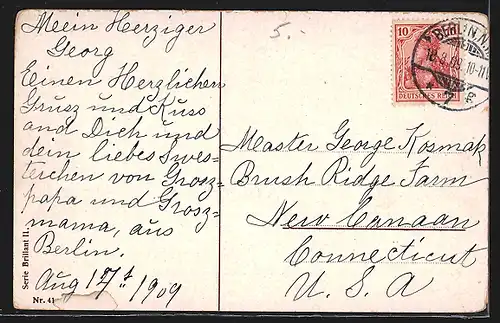 Meein Herziger
Georg
Einen Herzlichen
Grusz und Kuss
and Dich und
dein liebes Swes-
terschen von Grosz-
papa und Grosz-
mama, aus
Berlin.
Aug 17t 1909
Serie Brillant II.
Nr. 41
5.
10
DEUTSCHES REICH
BERLIN, N.
Measter George Kosmak
Brush Ridge Farm
New Canaan
Connecticut
U. S. A